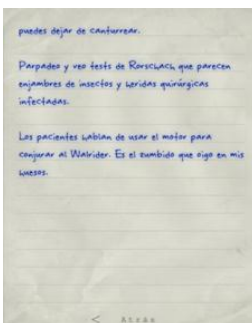 puedes dejar de canturrear.
Parpadeo y veo tests de Rorschach que parecen
enjambres de insectos y heridas quirúrgicas
infectadas.
Los pacientes hablan de usar el motor para
conjurar al Walrider. Es el zumbido que oigo en mis
huesos.
< Atrás